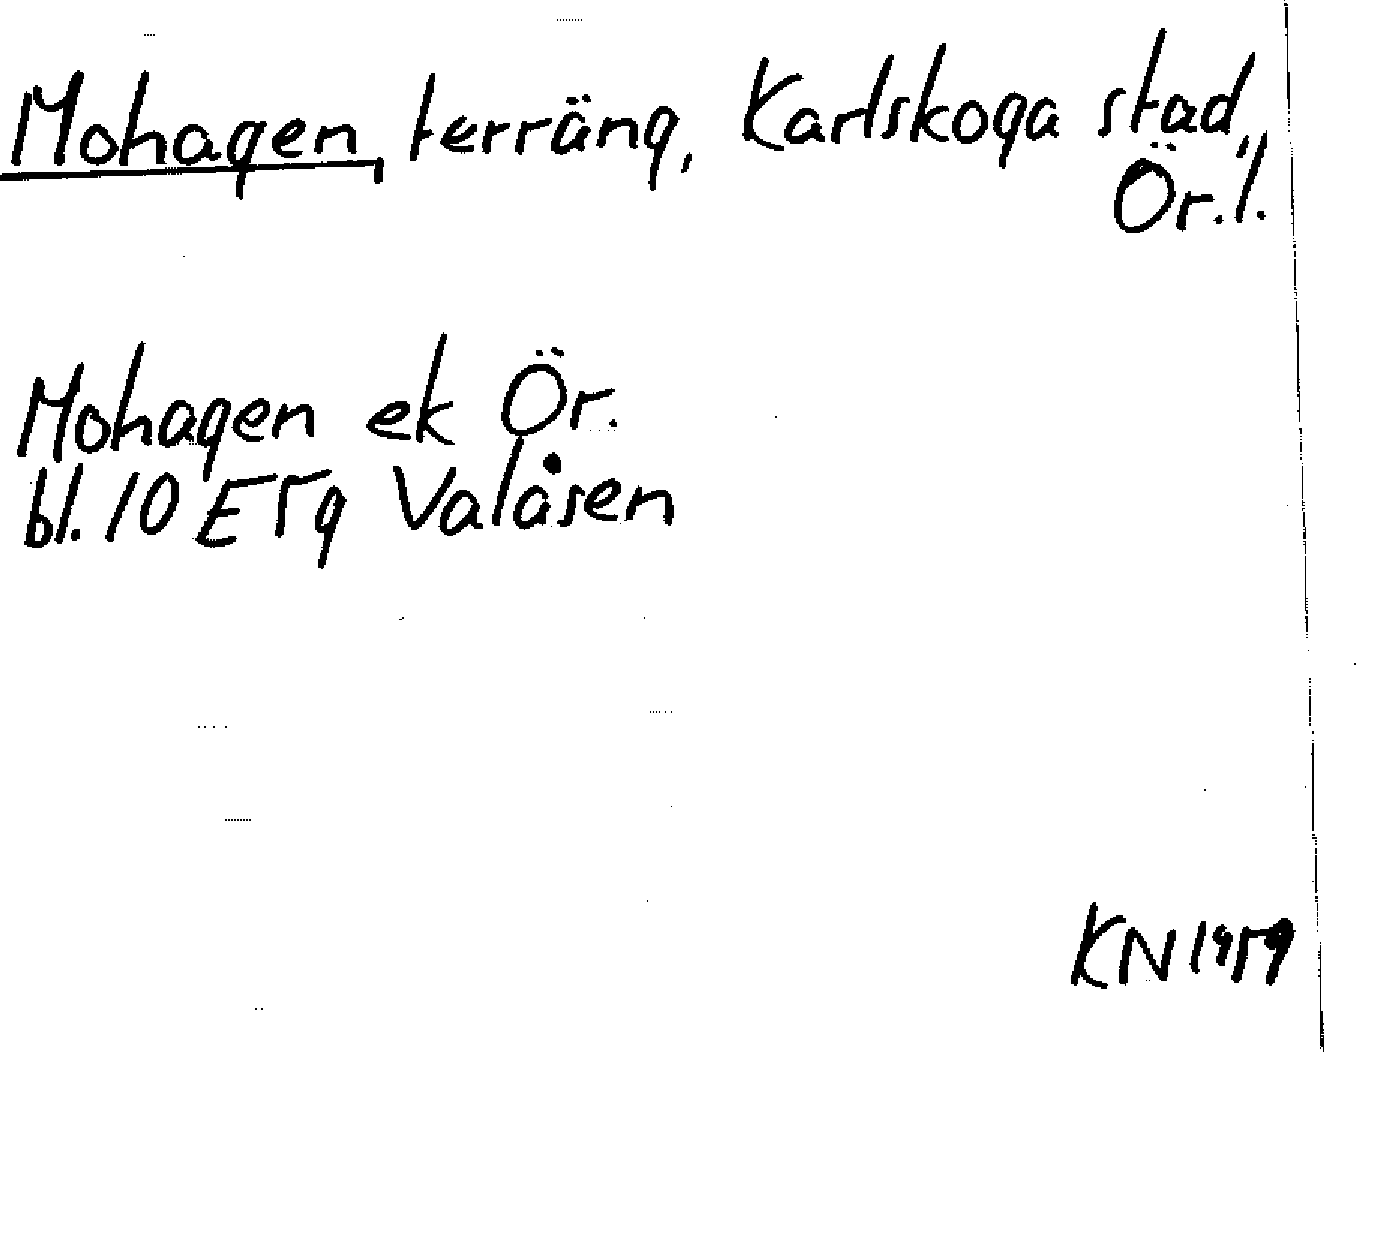 Mohagen, terräng, Karlskoga stad,
Ör.l.
Mohagen ek Ör.
bl. 10 E5g Valåsen
KN 1959